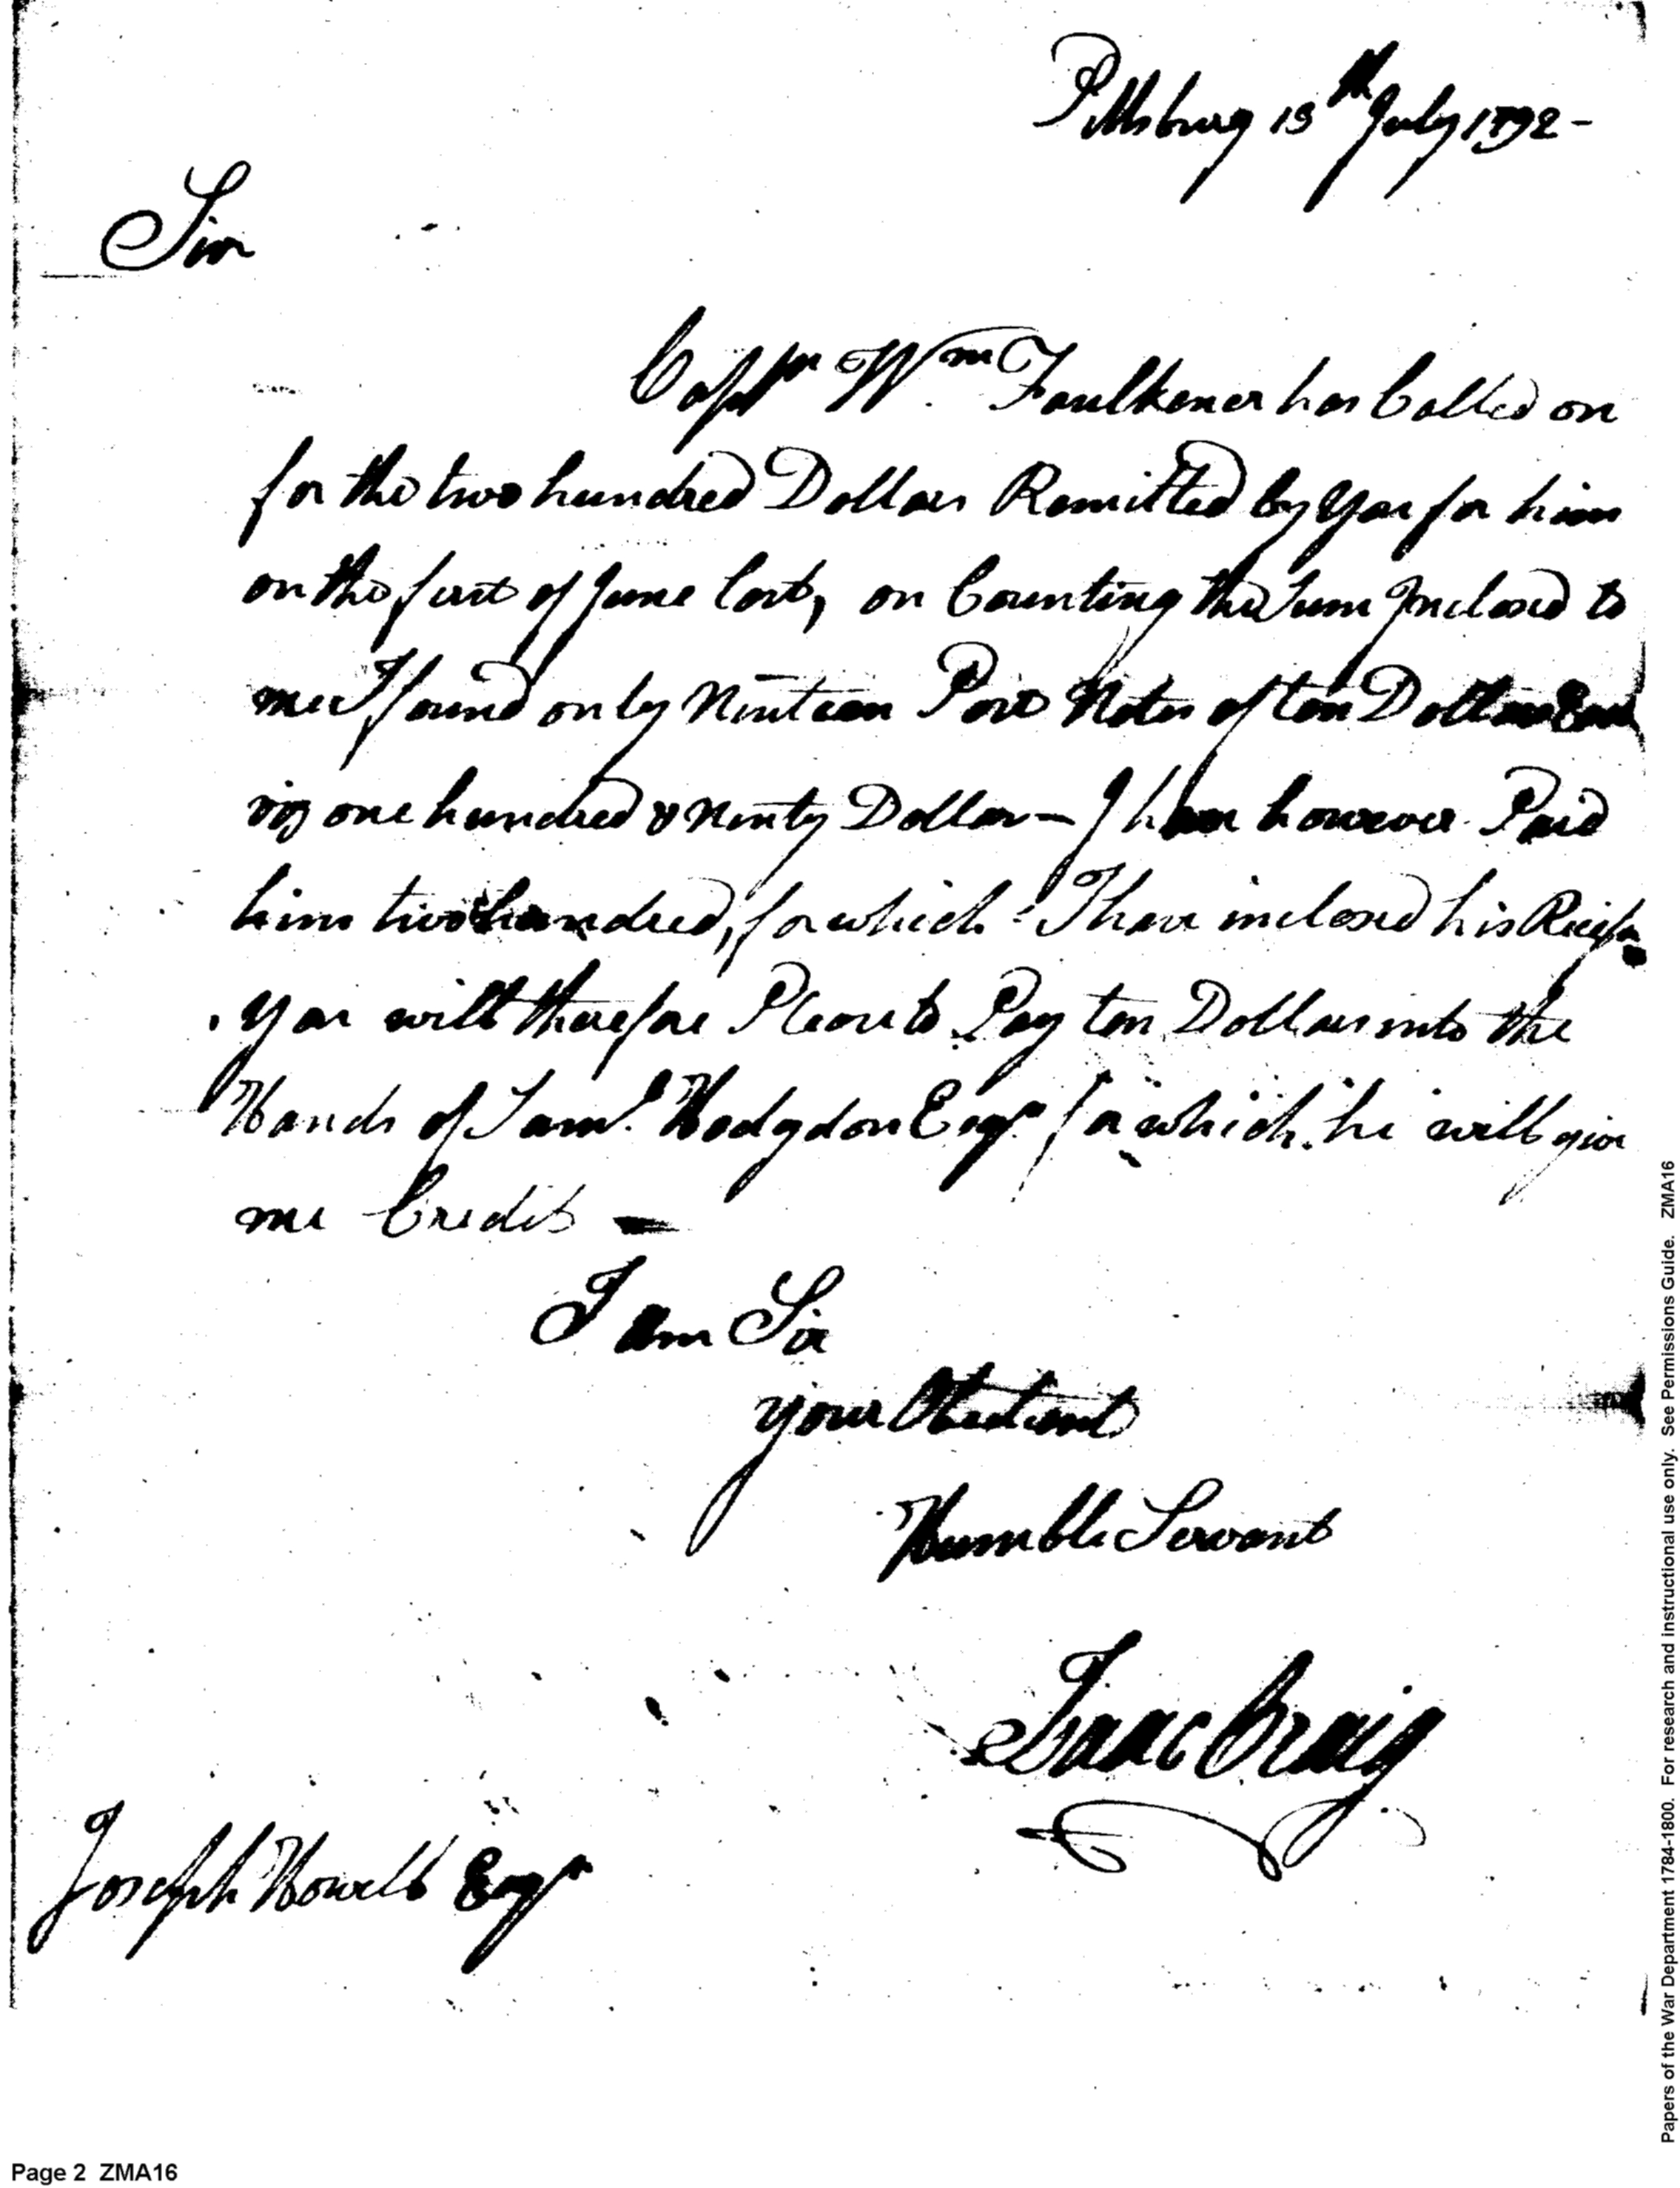 Pittsburg 13th July 1792 -
Sir
Captn Wm Faulkener has Called on
for the two hundred Dollars Remitted by You for him
on the first of June last, on Counting the Sum Inclosed to
me I found only Ninteen Post Notes of ten Dollars Each
viz one hundred & Ninty Dollars - I have however Paid
him two hundred, for which I have inclosed his Receipt
You will therefore Please to Pay ten Dollars into the
Hands of Saml. Hodgdon Esqr for which he will give
me Credit —
I am Sir
your Obedient
Humble Servant
Isaac Craig
Joseph Howell Esqr
Page 2 ZMA16
Papers of the War Department 1784-1800. For research and instructional use only. See Permissions Guide. ZMA16